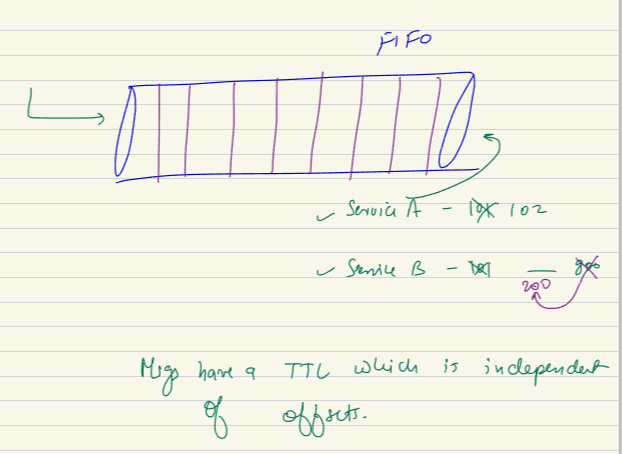 FIFO
✓ Service A - 102
✓ Service B - 101 __ 800
200
Msgs have a TTL which is independent
of offsets.